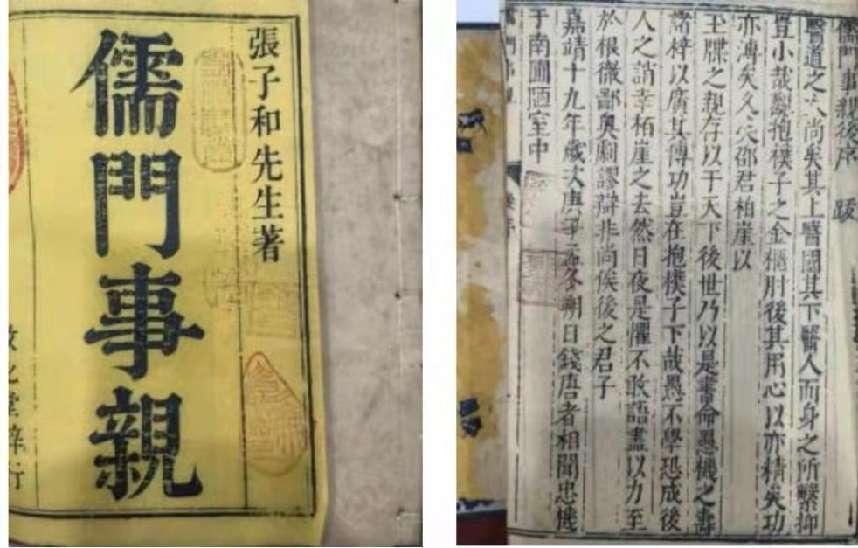 張子和先生著
儒門事親
儒門事親後序 跋
醫道之大尚矣其上醫國其下醫人而身之所繫抑
豈小哉抱樸子之金櫃肘後其用心以亦精矣功
亦溥矣今 邵君柏崖以
王牒之親存以干天下後世乃以是書命愚機之壽
諸梓以廣其傳功豈在抱樸子下哉愚不學恐成後
人之誚幸柏崖之去然日夜是懼不敢語盡以力至
於根微鄙奧剔謬辯非尚俟後之君子
嘉靖十九年歲次庚子孟冬朔日錢唐者相聞忠機
于南圃陋室中